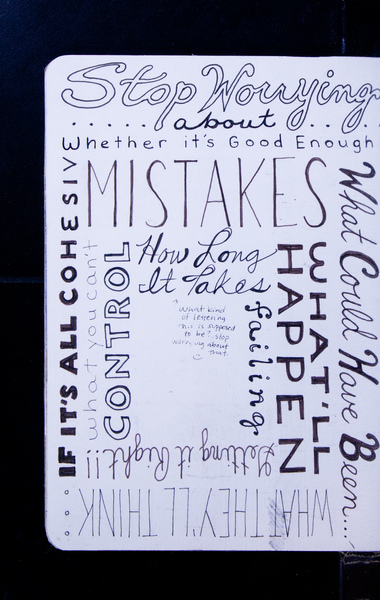 Stop Worrying
..... about .....
Whether it's Good Enough
MISTAKES
What Could Have Been...
How Long
It Takes
WHAT'LL
HAPPEN
failing
Getting it Right!!
WHAT THEY'LL THINK...
IF IT'S ALL COHESIVE
what you can't
CONTROL
"What kind
of lettering
this is supposed
to be? stop
worrying about
that.